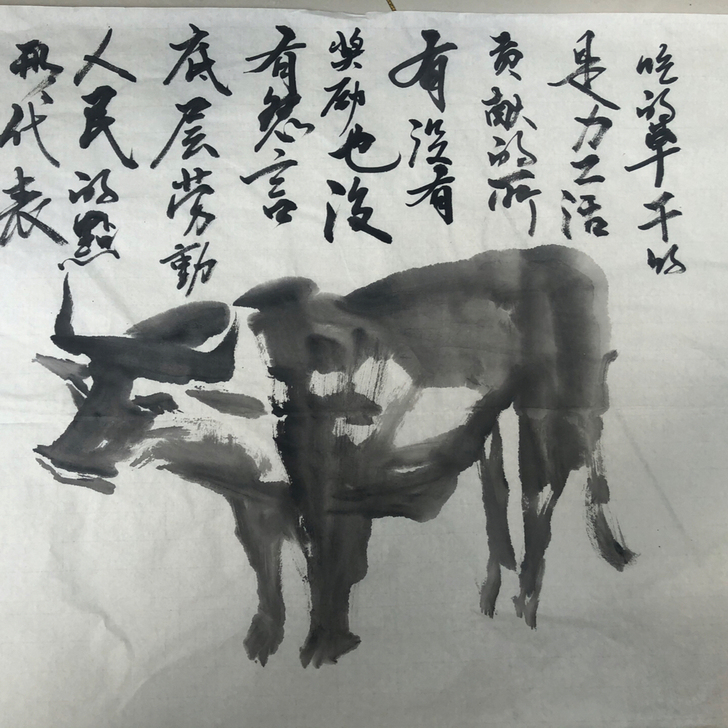 吃的草干的
是力工活
贡献的所
有没有
奖励也没
有怨言
底层劳動
人民的點
형代表